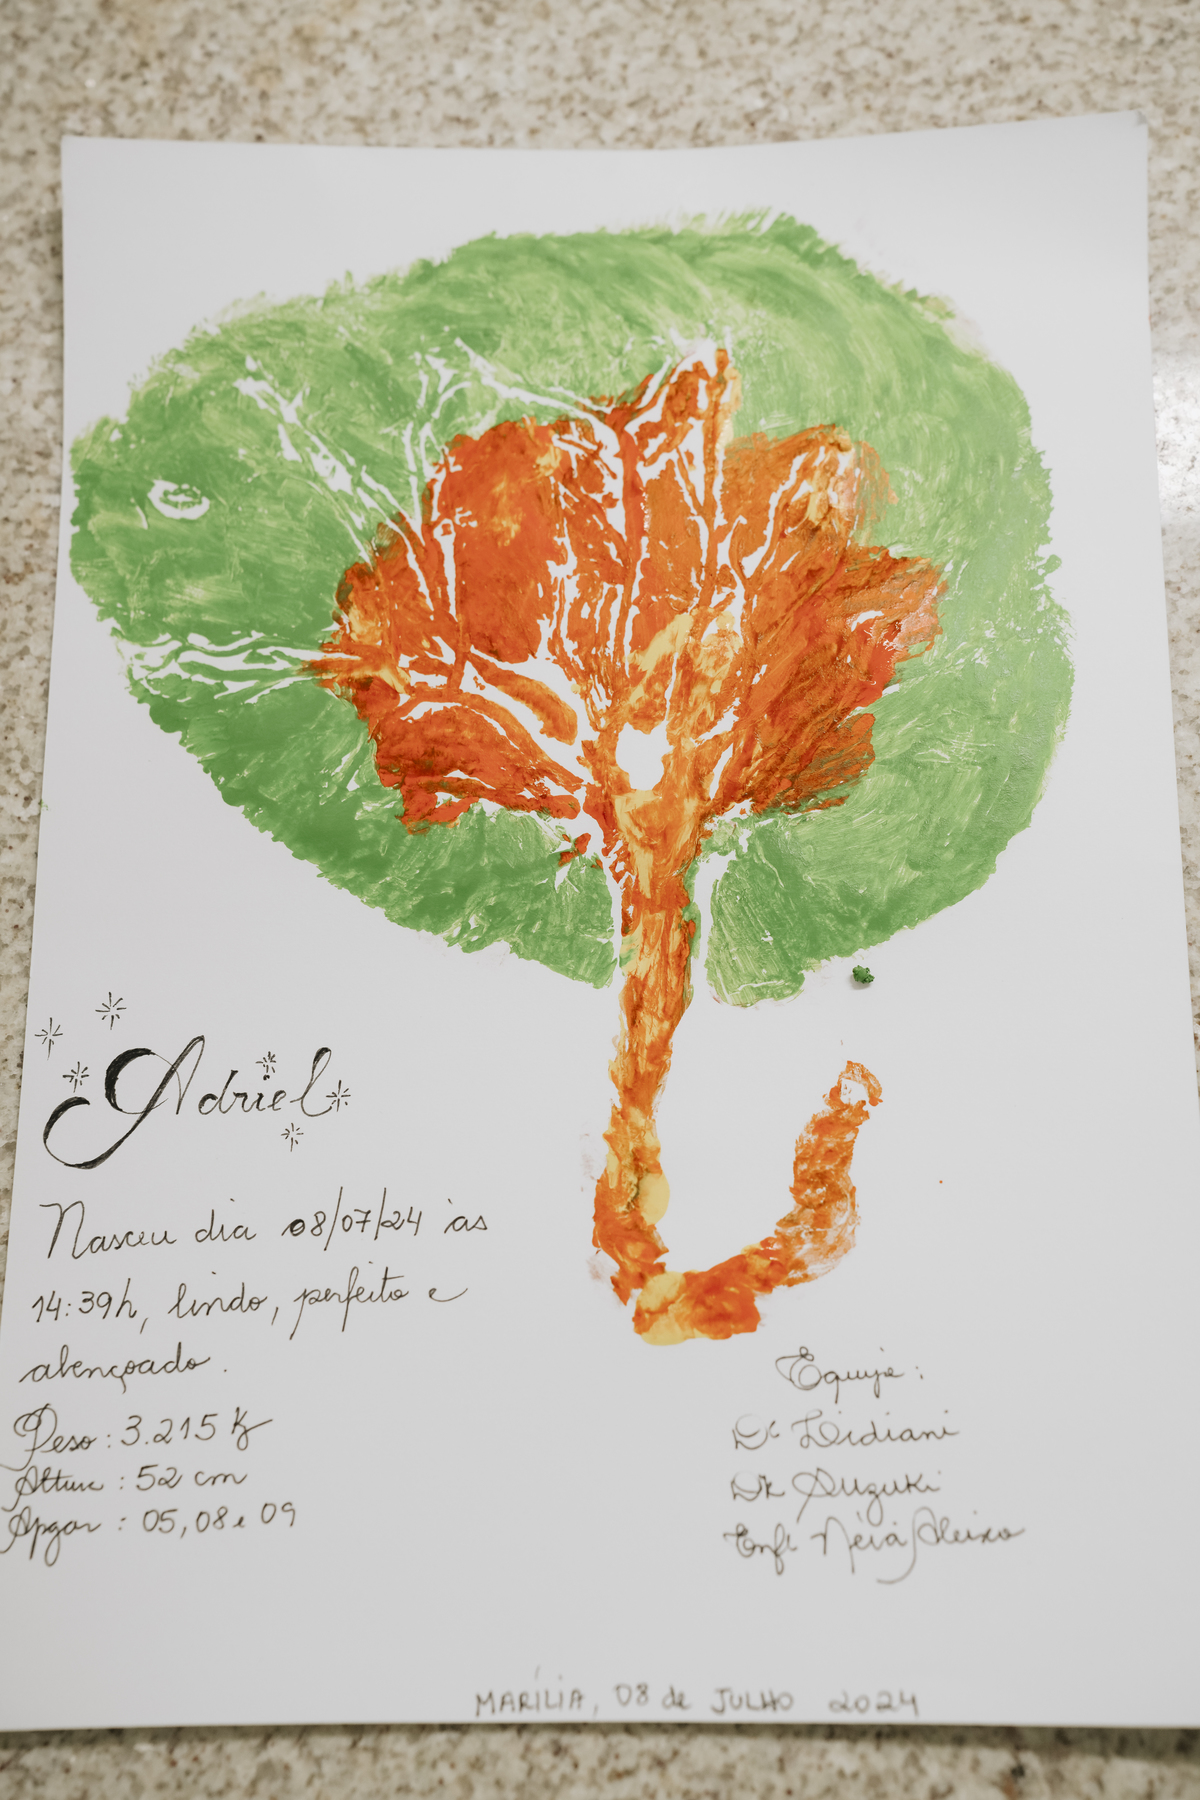 Adriel
Nasceu dia 08/07/24 às
14:39h, lindo, perfeito e
abençoado.
Peso: 3.215 K
Altura : 52 cm
Apgar : 05, 08 e 09
Equipe :
Dra Lidiani
Dr. Suzuki
Enfa Néia Aleixo
MARÍLIA, 08 de JULHO 2024